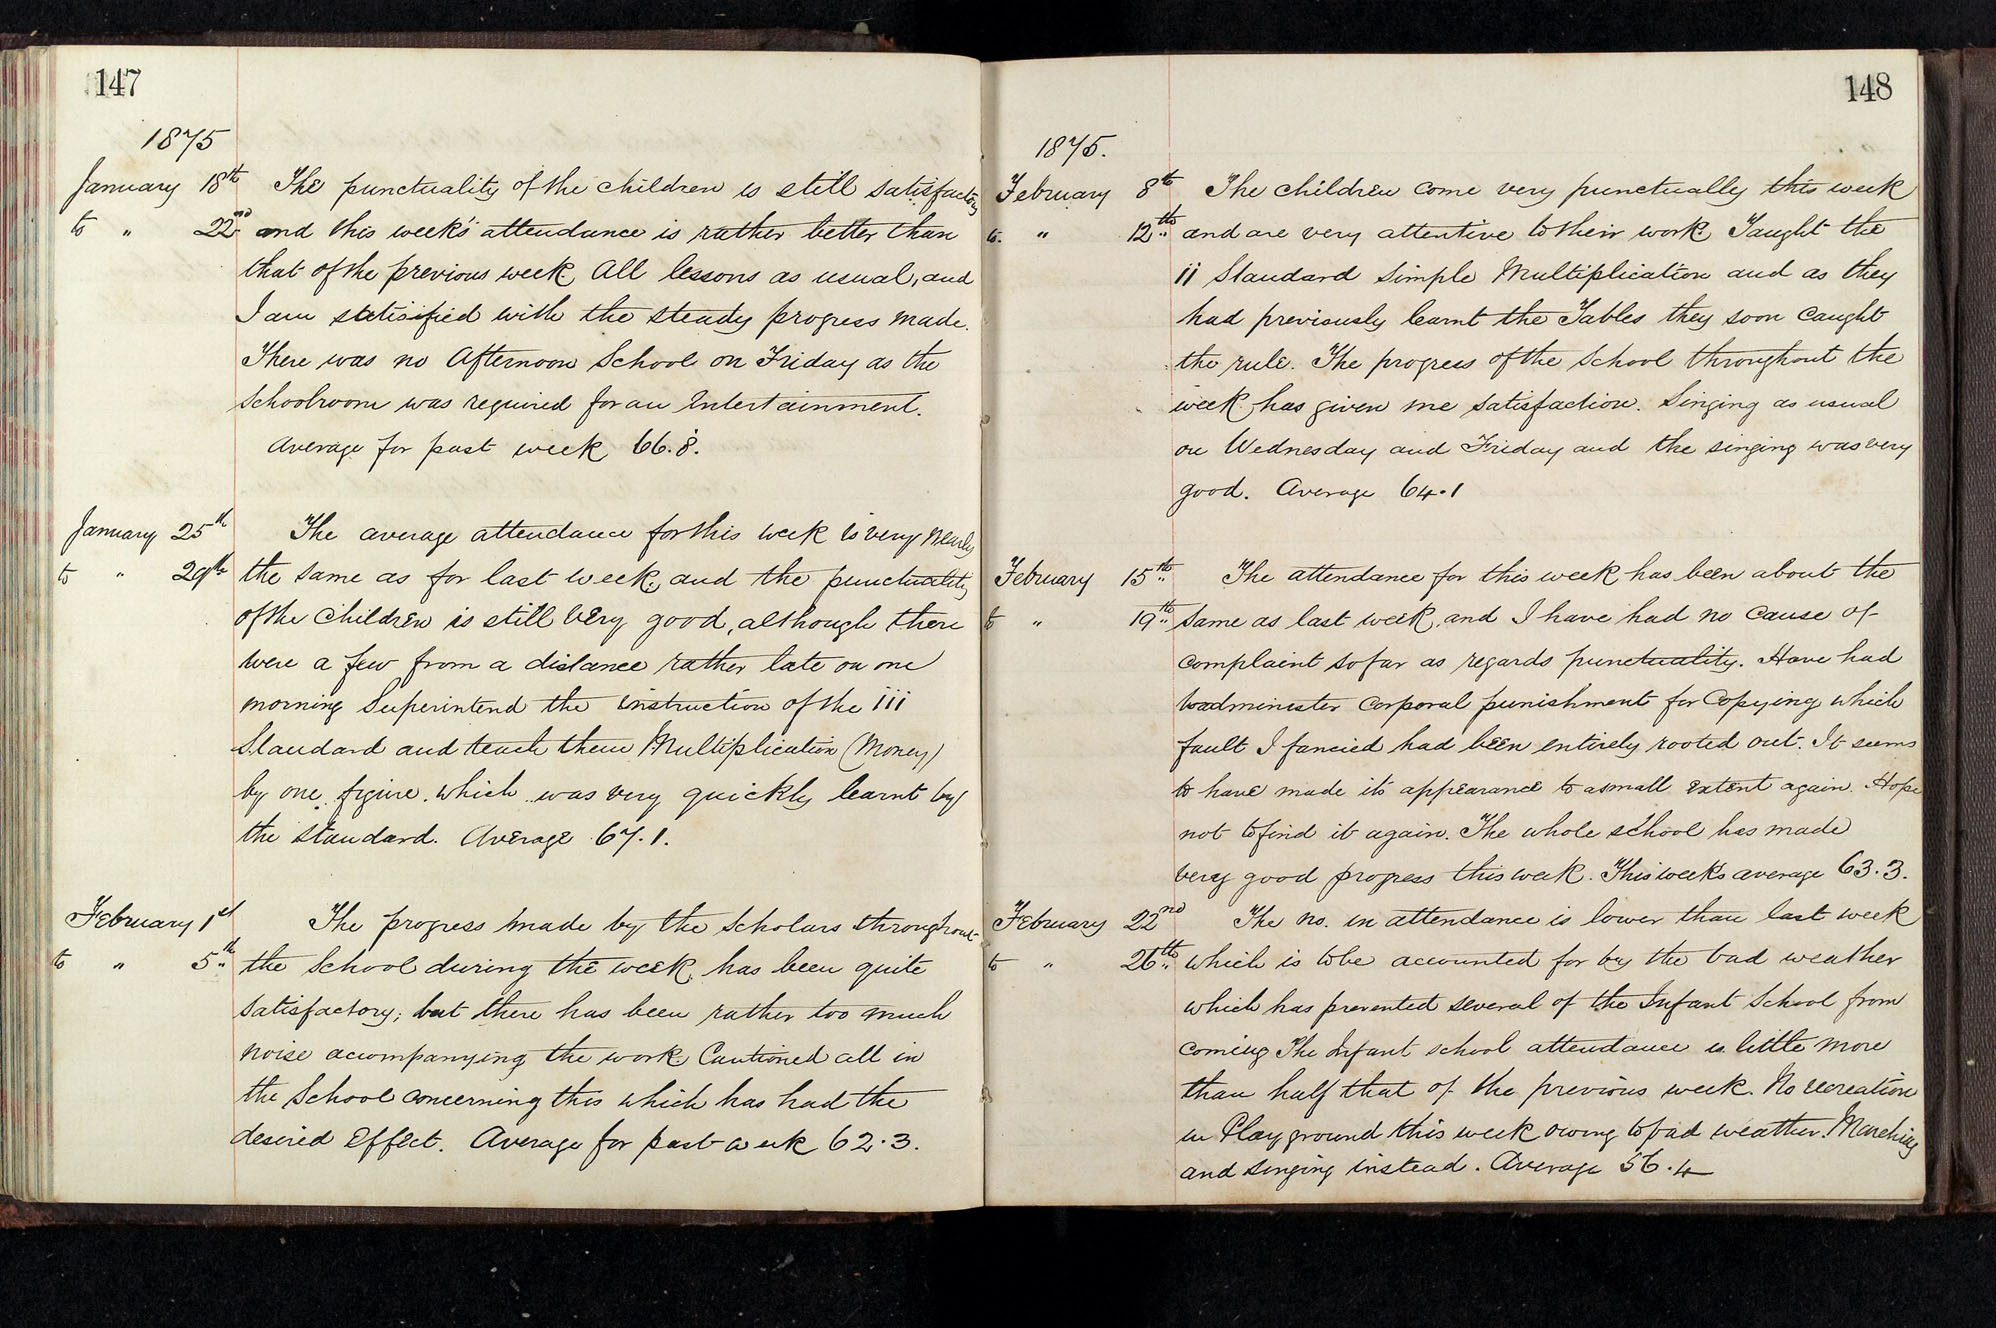 147
1875
January 18th The punctuality of the children is still satisfactory
to " 22nd and this week's attendance is rather better than
that of the previous week. All lessons as usual, and
I am satisified with the steady progress made.
There was no Afternoon School on Friday as the
Schoolroom was required for an Entertainment.
Average for past week 66.8.
January 25th The average attendance for this week is very nearly
to " 29th the same as for last week, and the punctuality
of the children is still very good, although there
were a few from a distance rather late on one
morning Superintend the instruction of the iii
Standard and teach them Multiplication (Money)
by one figure. which was very quickly learnt by
the standard. Average 67.1.
February 1st The progress made by the Scholars throughout
to " 5th the School during the week, has been quite
satisfactory; but there has been rather too much
noise accompanying the work. Cautioned all in
the School concerning this which has had the
desired Effect. Average for past week 62.3.
148
1875.
February 8th The children come very punctually this week
to " 12th and are very attentive to their work. Taught the
ii Standard Simple Multiplication and as they
had previously learnt the Tables they soon caught
the rule. The progress of the School throughout the
week has given me satisfaction. Singing as usual
on Wednesday and Friday and the singing was very
good. Average 64.1
February 15th The attendance for this week has been about the
to " 19th same as last week, and I have had no cause of
complaint so far as regards punctuality. Have had
to administer corporal punishment for Copying which
fault I fancied had been entirely rooted out. It seems
to have made its appearance to a small extent again. Hope
not to find it again. The whole school has made
very good progress this week. This week's average 63.3.
February 22nd The no. in attendance is lower than last week
to " 26th which is to be accounted for by the bad weather
which has prevented several of the Infant School from
coming The Infant school attendance is little more
than half that of the previous week. No recreation
in Playground this week owing to bad weather. Marching
and singing instead. Average 56.4